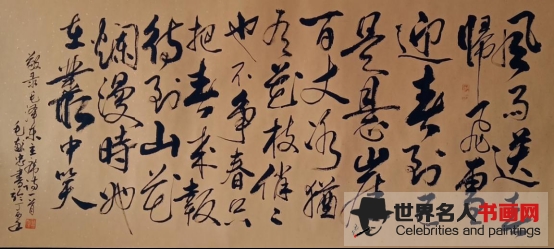 風雨送春
歸飛雪
迎春到已
是懸崖
百丈冰猶
有花枝俏〻
也不爭春只
把春來報
待到山花
爛漫時她
在叢中笑
敬录毛澤东主席詩一首
書於丁酉
世界名人书画网
Celebrities and paintings